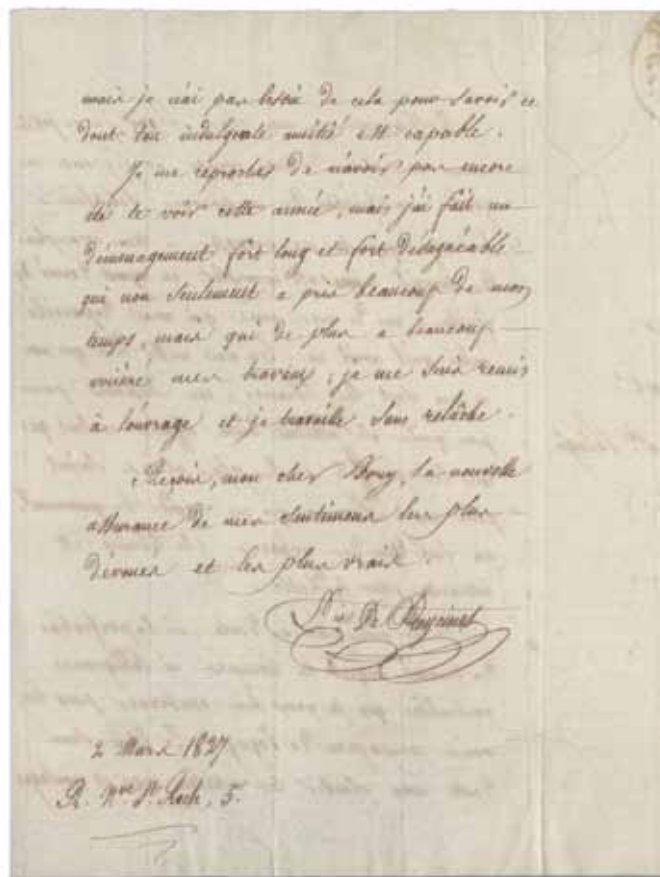 mais je n'ai pas besoin de cela pour savoir ce
dont ton indulgente amitié est capable.
Je me reproches de n'avoir pas encore
été te voir cette année, mais j'ai fait un
déménagement fort long et fort désagréable
qui non seulement a pris beaucoup de mon
temps, mais qui de plus a beaucoup
arriéré mes travaux; je me suis remis
à l'ouvrage et je travaille sans relâche.
Reçois, mon cher Bory, la nouvelle
assurance de mes sentimens les plus
dévoués et les plus vrais.
De Freycinet
2 Mars 1827
R. Nve St Roch, 5.